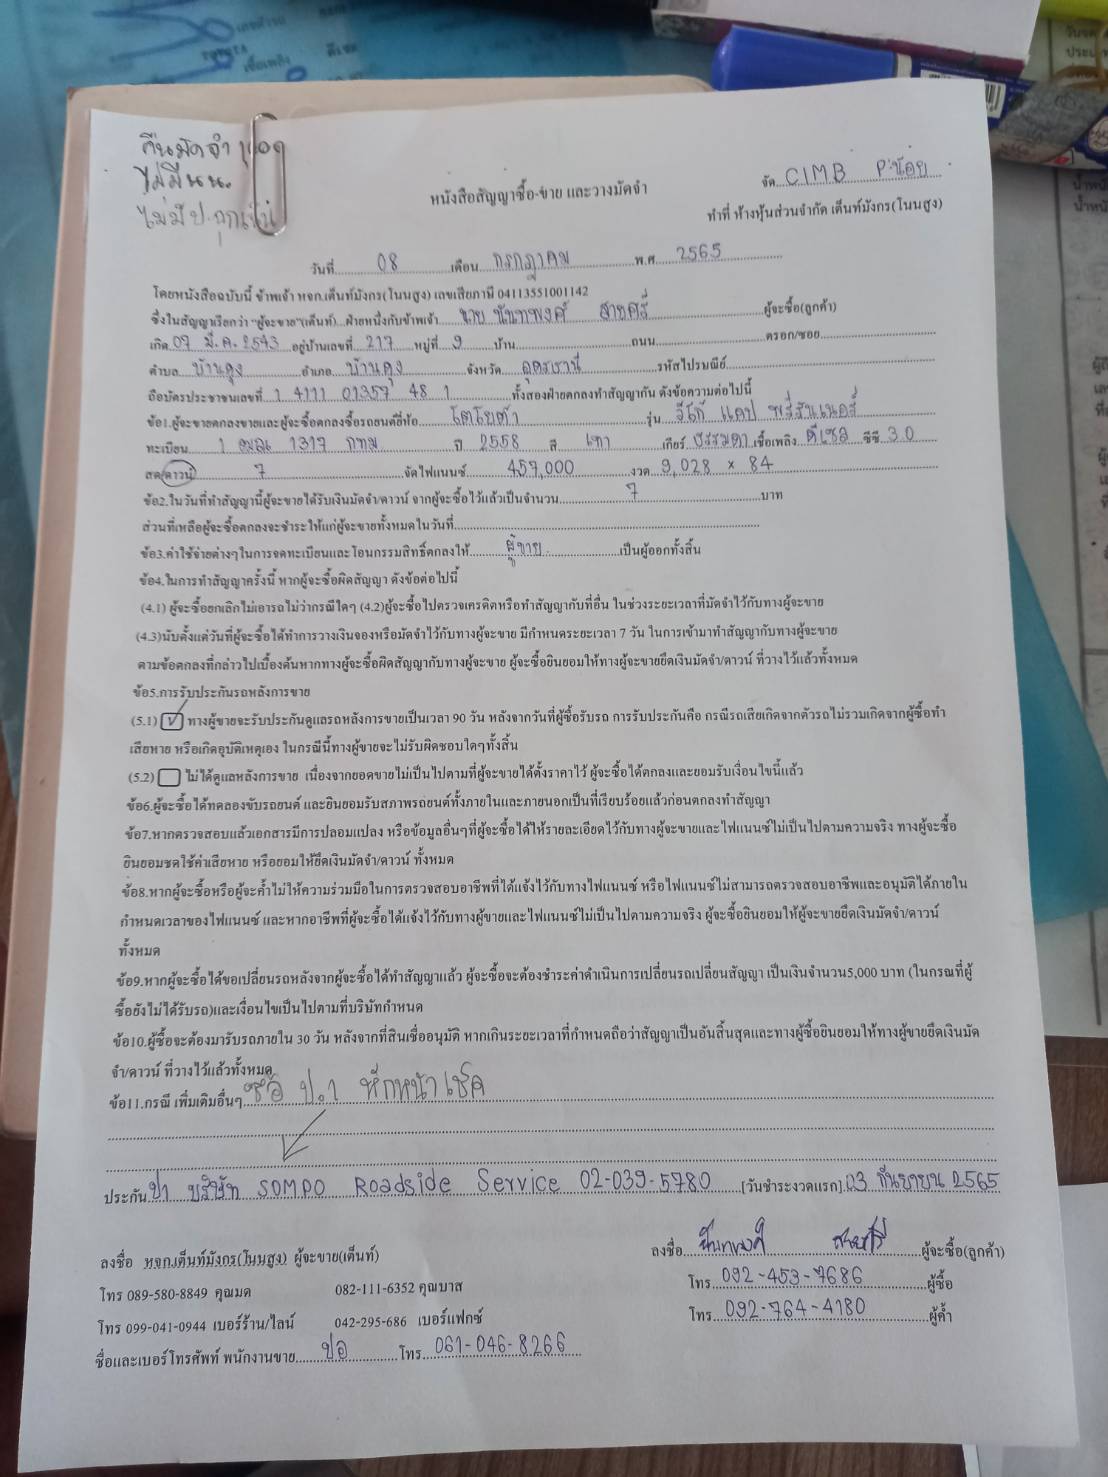 คืนมัดจำ
ไม่มี นน.
ไม่มี ป.
จัด CIMB P'น้อย
หนังสือสัญญาซื้อ-ขาย และวางมัดจำ
ทำที่ ห้างหุ้นส่วนจำกัด เต็นท์มังกร(โนนสูง)
วันที่ 08 เดือน กรกฎาคม พ.ศ. 2565
โดยหนังสือฉบับนี้ ข้าพเจ้า หจก.เต็นท์มังกร(โนนสูง) เลขเสียภาษี 04113551001142
ซึ่งในสัญญาเรียกว่า "ผู้จะขาย"(เต็นท์)...ฝ่ายหนึ่งกับข้าพเจ้า นาย นันทพงศ์ สายศรี ผู้จะซื้อ(ลูกค้า)
เกิด 07 มี.ค. 2543 อยู่บ้านเลขที่ 217 หมู่ที่ 9 บ้าน ถนน ตรอก/ซอย
ตำบล บ้านดุง อำเภอ บ้านดุง จังหวัด อุดรธานี รหัสไปรษณีย์
ถือบัตรประชาชนเลขที่ 1 4111 01357 48 1 ทั้งสองฝ่ายตกลงทำสัญญากัน ดังข้อความต่อไปนี้
ข้อ1.ผู้จะขายตกลงขายและผู้จะซื้อตกลงซื้อรถยนต์ยี่ห้อ โตโยต้า รุ่น วีโก้ แคป พรีรันเนอร์
ทะเบียน 1 ฒณ 1317 กทม ปี 2558 สี เทา เกียร์ ธรรมดา เชื้อเพลิง ดีเซล ซีซี 3.0
สด/ดาวน์ 7 จัดไฟแนนซ์ 459,000 งวด 9,028 × 84
ข้อ2.ในวันที่ทำสัญญานี้ผู้จะขายได้รับเงินมัดจำ/ดาวน์ จากผู้จะซื้อไว้แล้วเป็นจำนวน 7 บาท
ส่วนที่เหลือผู้จะซื้อตกลงจะชำระให้แก่ผู้จะขายทั้งหมดในวันที่
ข้อ3.ค่าใช้จ่ายต่างๆในการจดทะเบียนและโอนกรรมสิทธิ์ตกลงให้ ผู้ขาย เป็นผู้ออกทั้งสิ้น
ข้อ4.ในการทำสัญญาครั้งนี้ หากผู้จะซื้อผิดสัญญา ดังข้อต่อไปนี้
(4.1) ผู้จะซื้อยกเลิกไม่เอารถไม่ว่ากรณีใดๆ (4.2)ผู้จะซื้อไปตรวจเครดิตหรือทำสัญญากับที่อื่น ในช่วงระยะเวลาที่มัดจำไว้กับทางผู้จะขาย
(4.3)นับตั้งแต่วันที่ผู้จะซื้อได้ทำการวางเงินจองหรือมัดจำไว้กับทางผู้จะขาย มีกำหนดระยะเวลา 7 วัน ในการเข้ามาทำสัญญากับทางผู้จะขาย
ตามข้อตกลงที่กล่าวไปเบื้องต้นหากทางผู้จะซื้อผิดสัญญากับทางผู้จะขาย ผู้จะซื้อยินยอมให้ทางผู้จะขายยึดเงินมัดจำ/ดาวน์ ที่วางไว้แล้วทั้งหมด
ข้อ5.การรับประกันรถหลังการขาย
(5.1) ✓ ทางผู้ขายจะรับประกันดูแลรถหลังการขายเป็นเวลา 90 วัน หลังจากวันที่ผู้ซื้อรับรถ การรับประกันคือ กรณีรถเสียเกิดจากตัวรถไม่รวมเกิดจากผู้ซื้อทำ
เสียหาย หรือเกิดอุบัติเหตุเอง ในกรณีนี้ทางผู้ขายจะไม่รับผิดชอบใดๆทั้งสิ้น
(5.2) ไม่ได้ดูแลหลังการขาย เนื่องจากยอดขายไม่เป็นไปตามที่ผู้จะขายได้ตั้งราคาไว้ ผู้จะซื้อได้ตกลงและยอมรับเงื่อนไขนี้แล้ว
ข้อ6.ผู้จะซื้อได้ทดลองขับรถยนต์ และยินยอมรับสภาพรถยนต์ทั้งภายในและภายนอกเป็นที่เรียบร้อยแล้วก่อนตกลงทำสัญญา
ข้อ7.หากตรวจสอบแล้วเอกสารมีการปลอมแปลง หรือข้อมูลอื่นๆที่ผู้จะซื้อได้ให้รายละเอียดไว้กับทางผู้จะขายและไฟแนนซ์ไม่เป็นไปตามความจริง ทางผู้จะซื้อ
ยินยอมชดใช้ค่าเสียหาย หรือยอมให้ยึดเงินมัดจำ/ดาวน์ ทั้งหมด
ข้อ8.หากผู้จะซื้อหรือผู้จะค้ำไม่ให้ความร่วมมือในการตรวจสอบอาชีพที่ได้แจ้งไว้กับทางไฟแนนซ์ หรือไฟแนนซ์ไม่สามารถตรวจสอบอาชีพและอนุมัติได้ภายใน
กำหนดเวลาของไฟแนนซ์ และหากอาชีพที่ผู้จะซื้อได้แจ้งไว้กับทางผู้ขายและไฟแนนซ์ไม่เป็นไปตามความจริง ผู้จะซื้อยินยอมให้ผู้จะขายยึดเงินมัดจำ/ดาวน์
ทั้งหมด
ข้อ9.หากผู้จะซื้อได้ขอเปลี่ยนรถหลังจากผู้จะซื้อได้ทำสัญญาแล้ว ผู้จะซื้อจะต้องชำระค่าดำเนินการเปลี่ยนรถเปลี่ยนสัญญา เป็นเงินจำนวน5,000 บาท (ในกรณที่ผู้
ซื้อยังไม่ได้รับรถ)และเงื่อนไขเป็นไปตามที่บริษัทกำหนด
ข้อ10.ผู้ซื้อจะต้องมารับรถภายใน 30 วัน หลังจากที่สินเชื่ออนุมัติ หากเกินระยะเวลาที่กำหนดถือว่าสัญญาเป็นอันสิ้นสุดและทางผู้ซื้อยินยอมให้ทางผู้ขายยึดเงินมัด
จำ/ดาวน์ ที่วางไว้แล้วทั้งหมด
ข้อ11.กรณี เพิ่มเติมอื่นๆ ซื้อ ป.1 หักหน้าเช็ค
ประกัน ป1 บริษัท SOMPO Roadside Service 02-039-5780 (วันชำระงวดแรก) 03 กันยายน 2565
ลงชื่อ หจก.เต็นท์มังกร(โนนสูง) ผู้จะขาย(เต็นท์)
ลงชื่อ นันทพงศ์ สายศรี ผู้จะซื้อ(ลูกค้า)
โทร 089-580-8849 คุณมด 082-111-6352 คุณบาส
โทร 092-453-7686 ผู้ซื้อ
โทร 099-041-0944 เบอร์ร้าน/ไลน์ 042-295-686 เบอร์แฟกซ์
โทร 092-764-4180 ผู้ค้ำ
ชื่อและเบอร์โทรศัพท์ พนักงานขาย ปอ โทร 061-046-8266